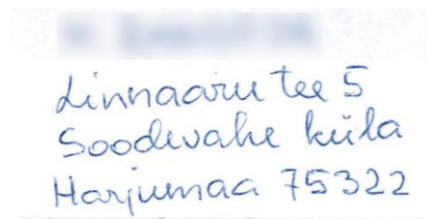 Linnaaru tee 5
Soodevahe küla
Harjumaa 75322